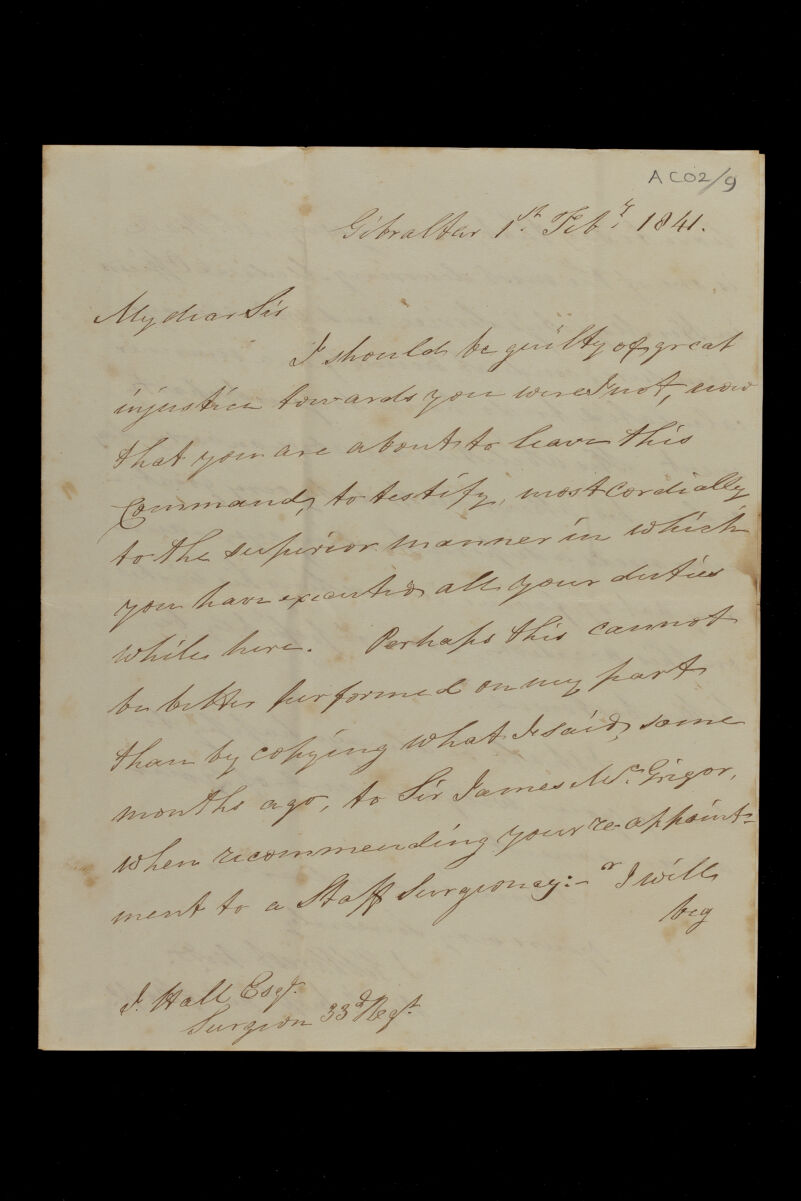 AC02/9
Gibraltar 1st. Feby. 1841.
My dear Sir
I should be guilty of great
injustice towards you were I not, now
that you are about to leave this
Command, to testify, most cordially
to the superior manner in which
you have executed all your duties
while here. Perhaps this cannot
be better performed on my part
than by copying what I said, some
months ago, to Sir James McGrigor,
when recommending your re-appoint-
ment to a Staff Surgeoncy:- "I will
beg
J. Hall Esqr.
Surgeon 33d Regt.